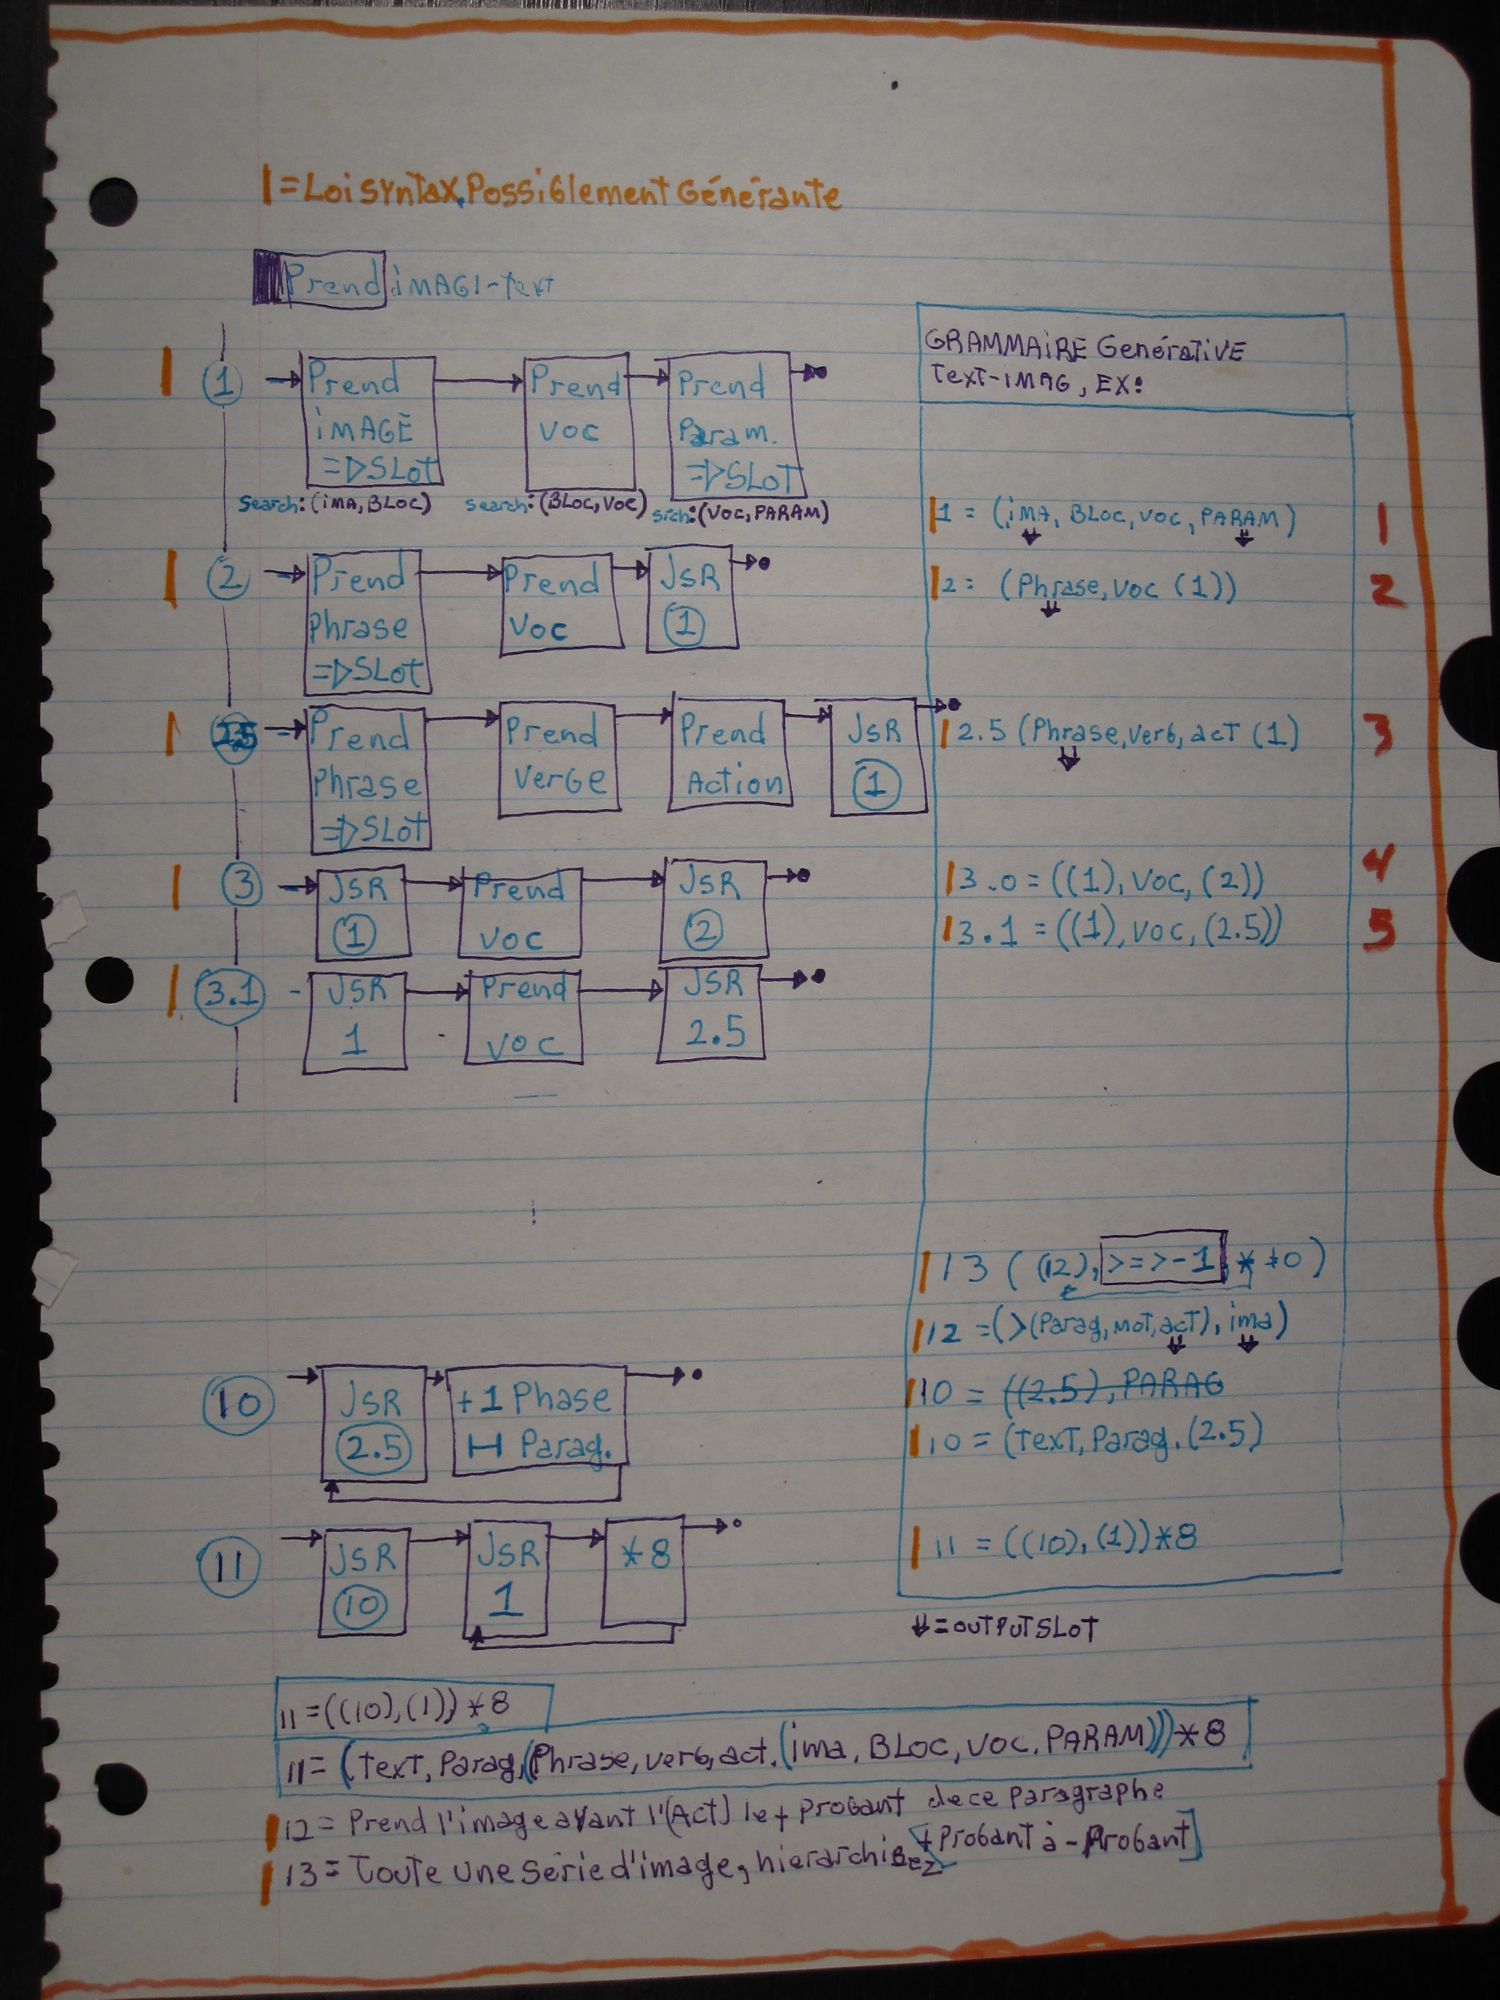 | = Loi syntax, Possiblement Générante
Prend iMAGI-text
GRAMMAIRE GenérATiVE
Text-iMAG, EX:
1 → Prend iMAGE =▷ SLot → Prend voc → Prend Param. =▷ SLot
Search: (iMA, BLOC) search: (BLOC, VOC) srch: (VOC, PARAM)
1 = (iMA, BLOC, VOC, PARAM) 1
2 → Prend Phrase =▷ SLot → Prend Voc → JSR 1
2 = (Phrase, voc (1)) 2
2.5 → Prend Phrase =▷ SLot → Prend VerGe → Prend Action → JSR 1
2.5 (Phrase, verb, act (1) 3
3 → JSR 1 → Prend voc → JSR 2
3.0 = ((1), VOC, (2)) 4
3.1 = ((1), VOC, (2.5)) 5
3.1 - JSR 1 → Prend voc → JSR 2.5
13 ( (12), >=>-1, * +0 )
12 = (>(Parag, MOT, act), ima)
10 → JSR 2.5 → +1 Phase Parag.
10 = ((2.5), PARAG
10 = (Text, Parag, (2.5)
11 → JSR 10 → JSR 1 → *8
11 = ((10), (1))*8
⇓ = OUTPUT SLOT
11 = ((10), (1)) *8
11 = (Text, Parag, (Phrase, verb, act, (ima, BLOC, VOC, PARAM)))*8
12 = Prend l'image ayant l'(Act) le + probant de ce Paragraphe
13 = Toute une série d'image, hierarchisez + Probant à - Probant]